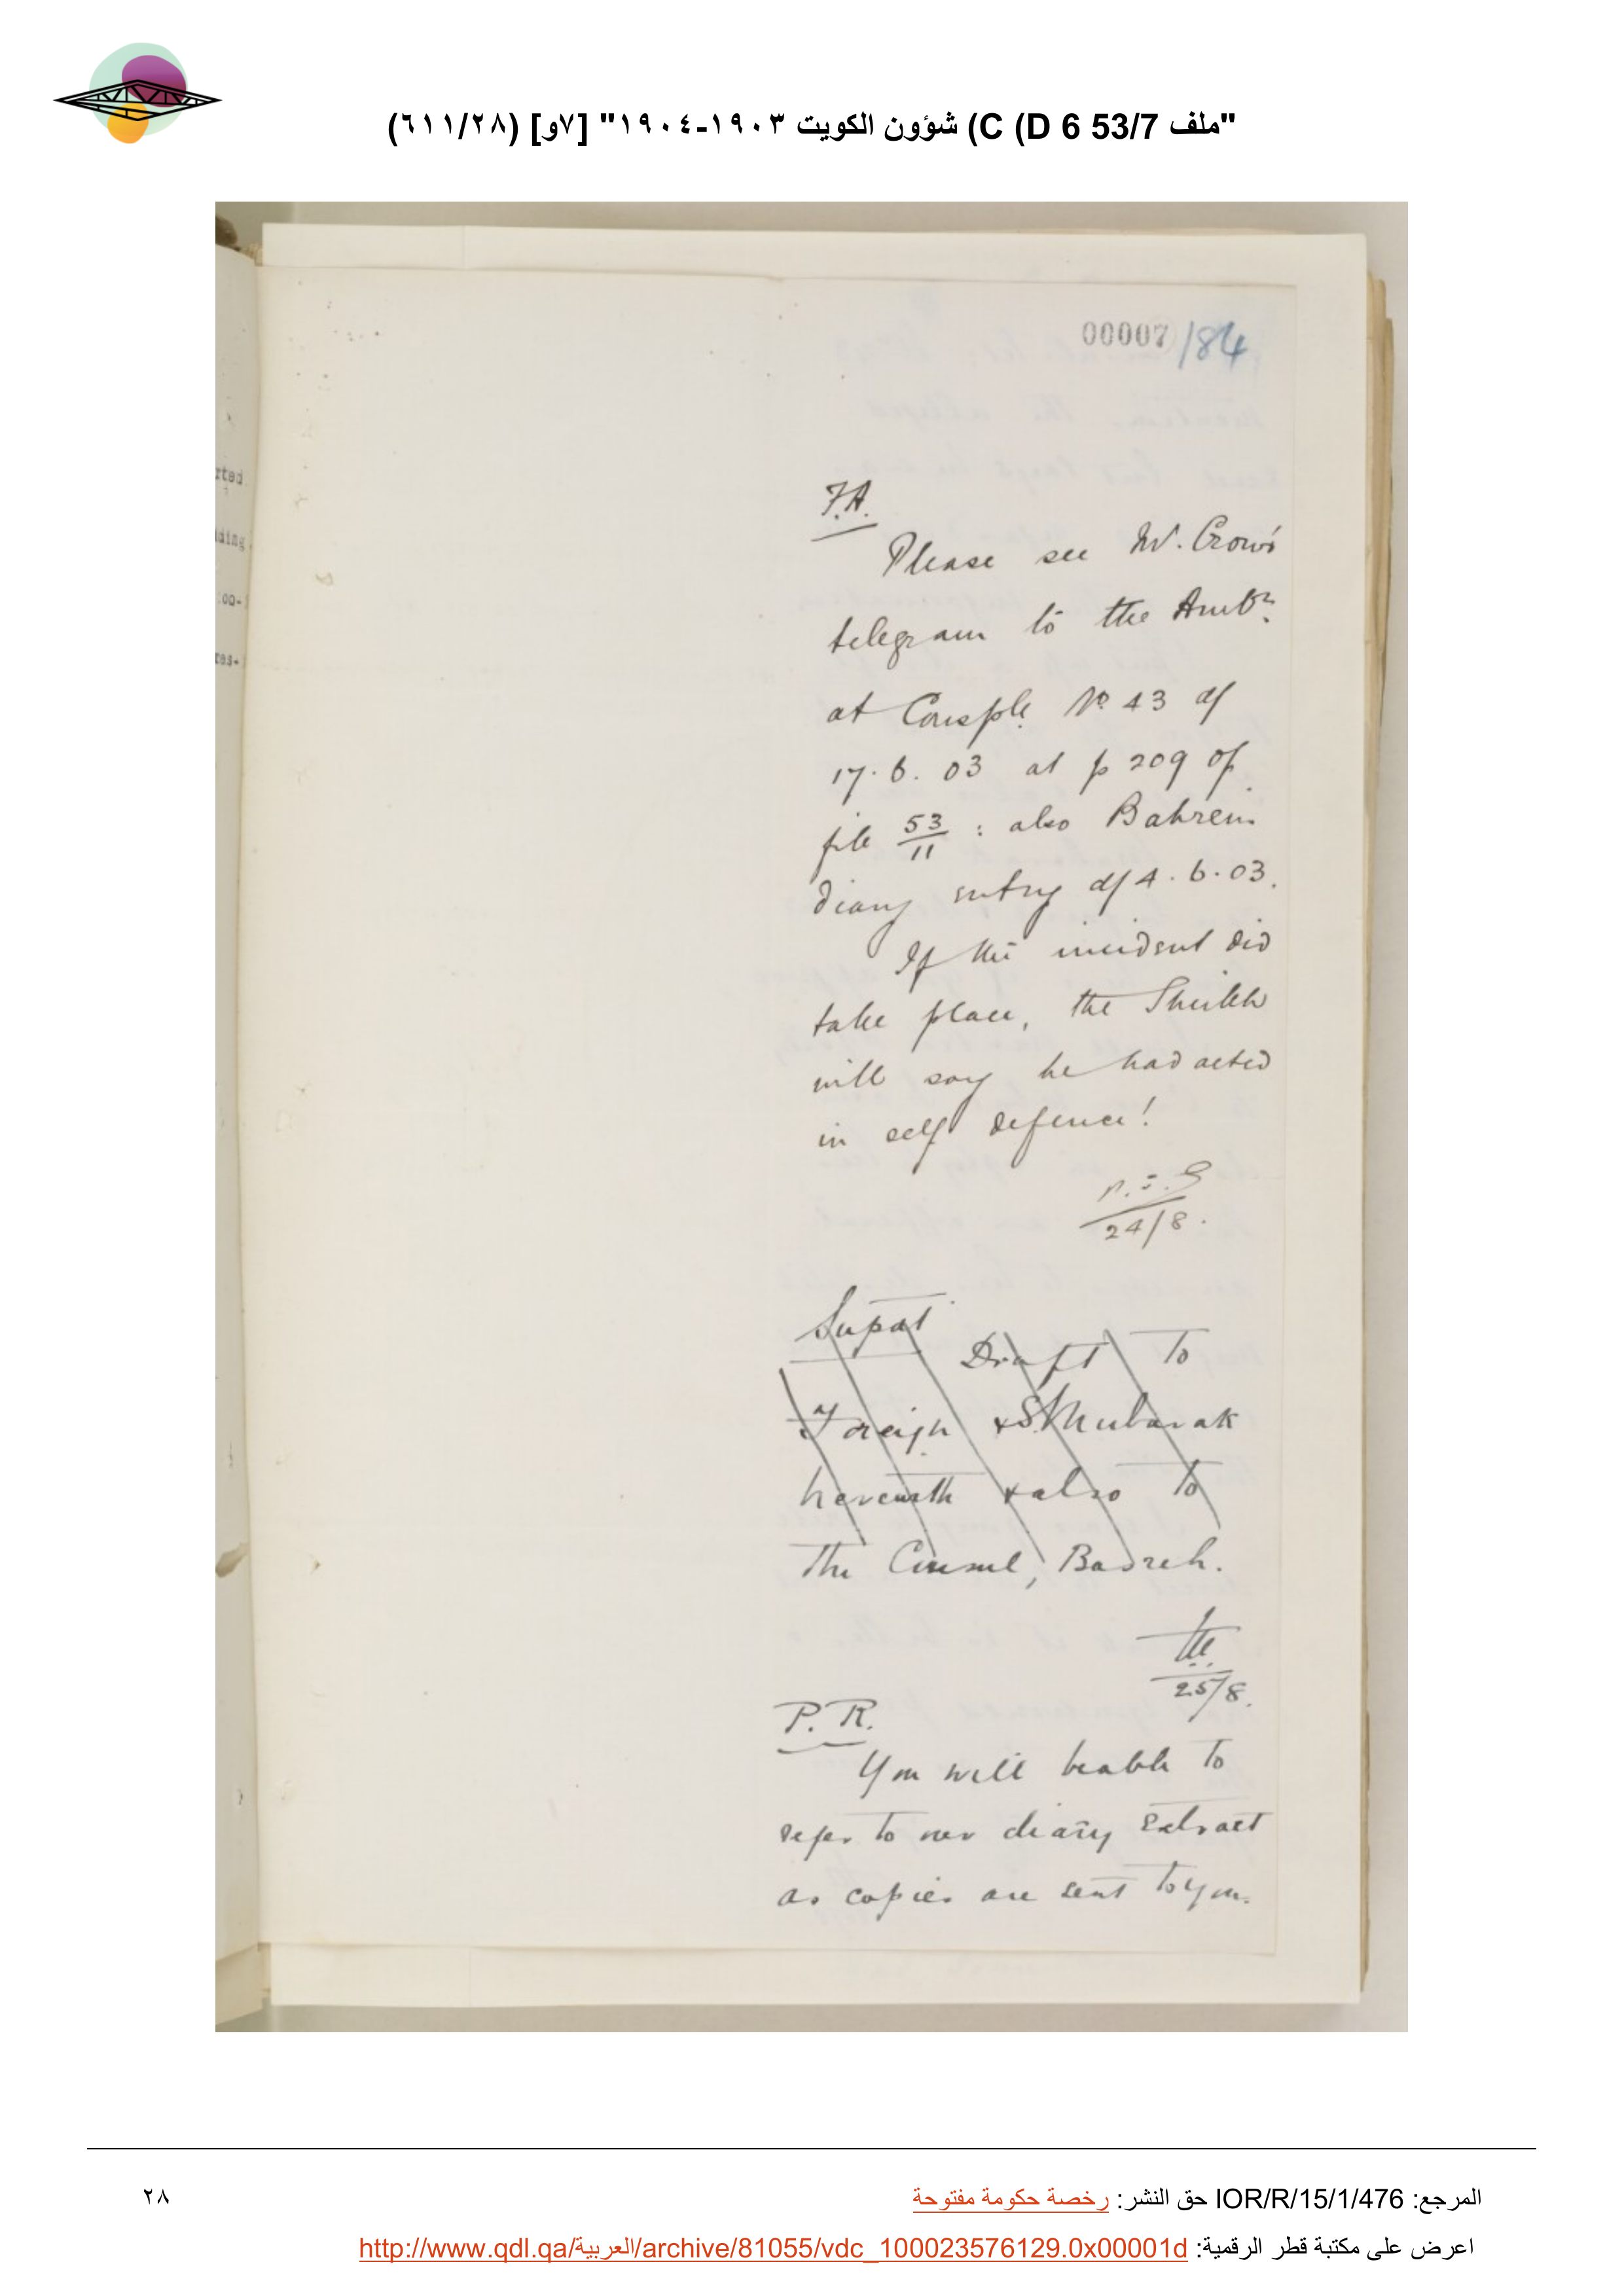 "ملف 53/7 C (D 6) شؤون الكويت ١٩٠٣-١٩٠٤" [٧و] (٦١١/٢٨)
00007 /84
rted
ding
oo-
res-
F.A.
Please see Mr. Crow's
telegram to the Ambr.
at Consple. No. 43 of
17.6.03 at p 209 of
file 53/11 : also Bahrein
diary entry of 4.6.03.
If the incident did
take place, the Sheikh
will say he had acted
in self defence!
24/8.
Supdt
Draft to
Foreign & S. Mubarak
herewith & also to
the Consul, Basreh.
25/8.
P. R.
You will be able to
refer to our diary extract
as copies are sent to you.
المرجع: IOR/R/15/1/476 حق النشر: رخصة حكومة مفتوحة
٢٨
اعرض على مكتبة قطر الرقمية: http://www.qdl.qa/العربية/archive/81055/vdc_100023576129.0x00001d